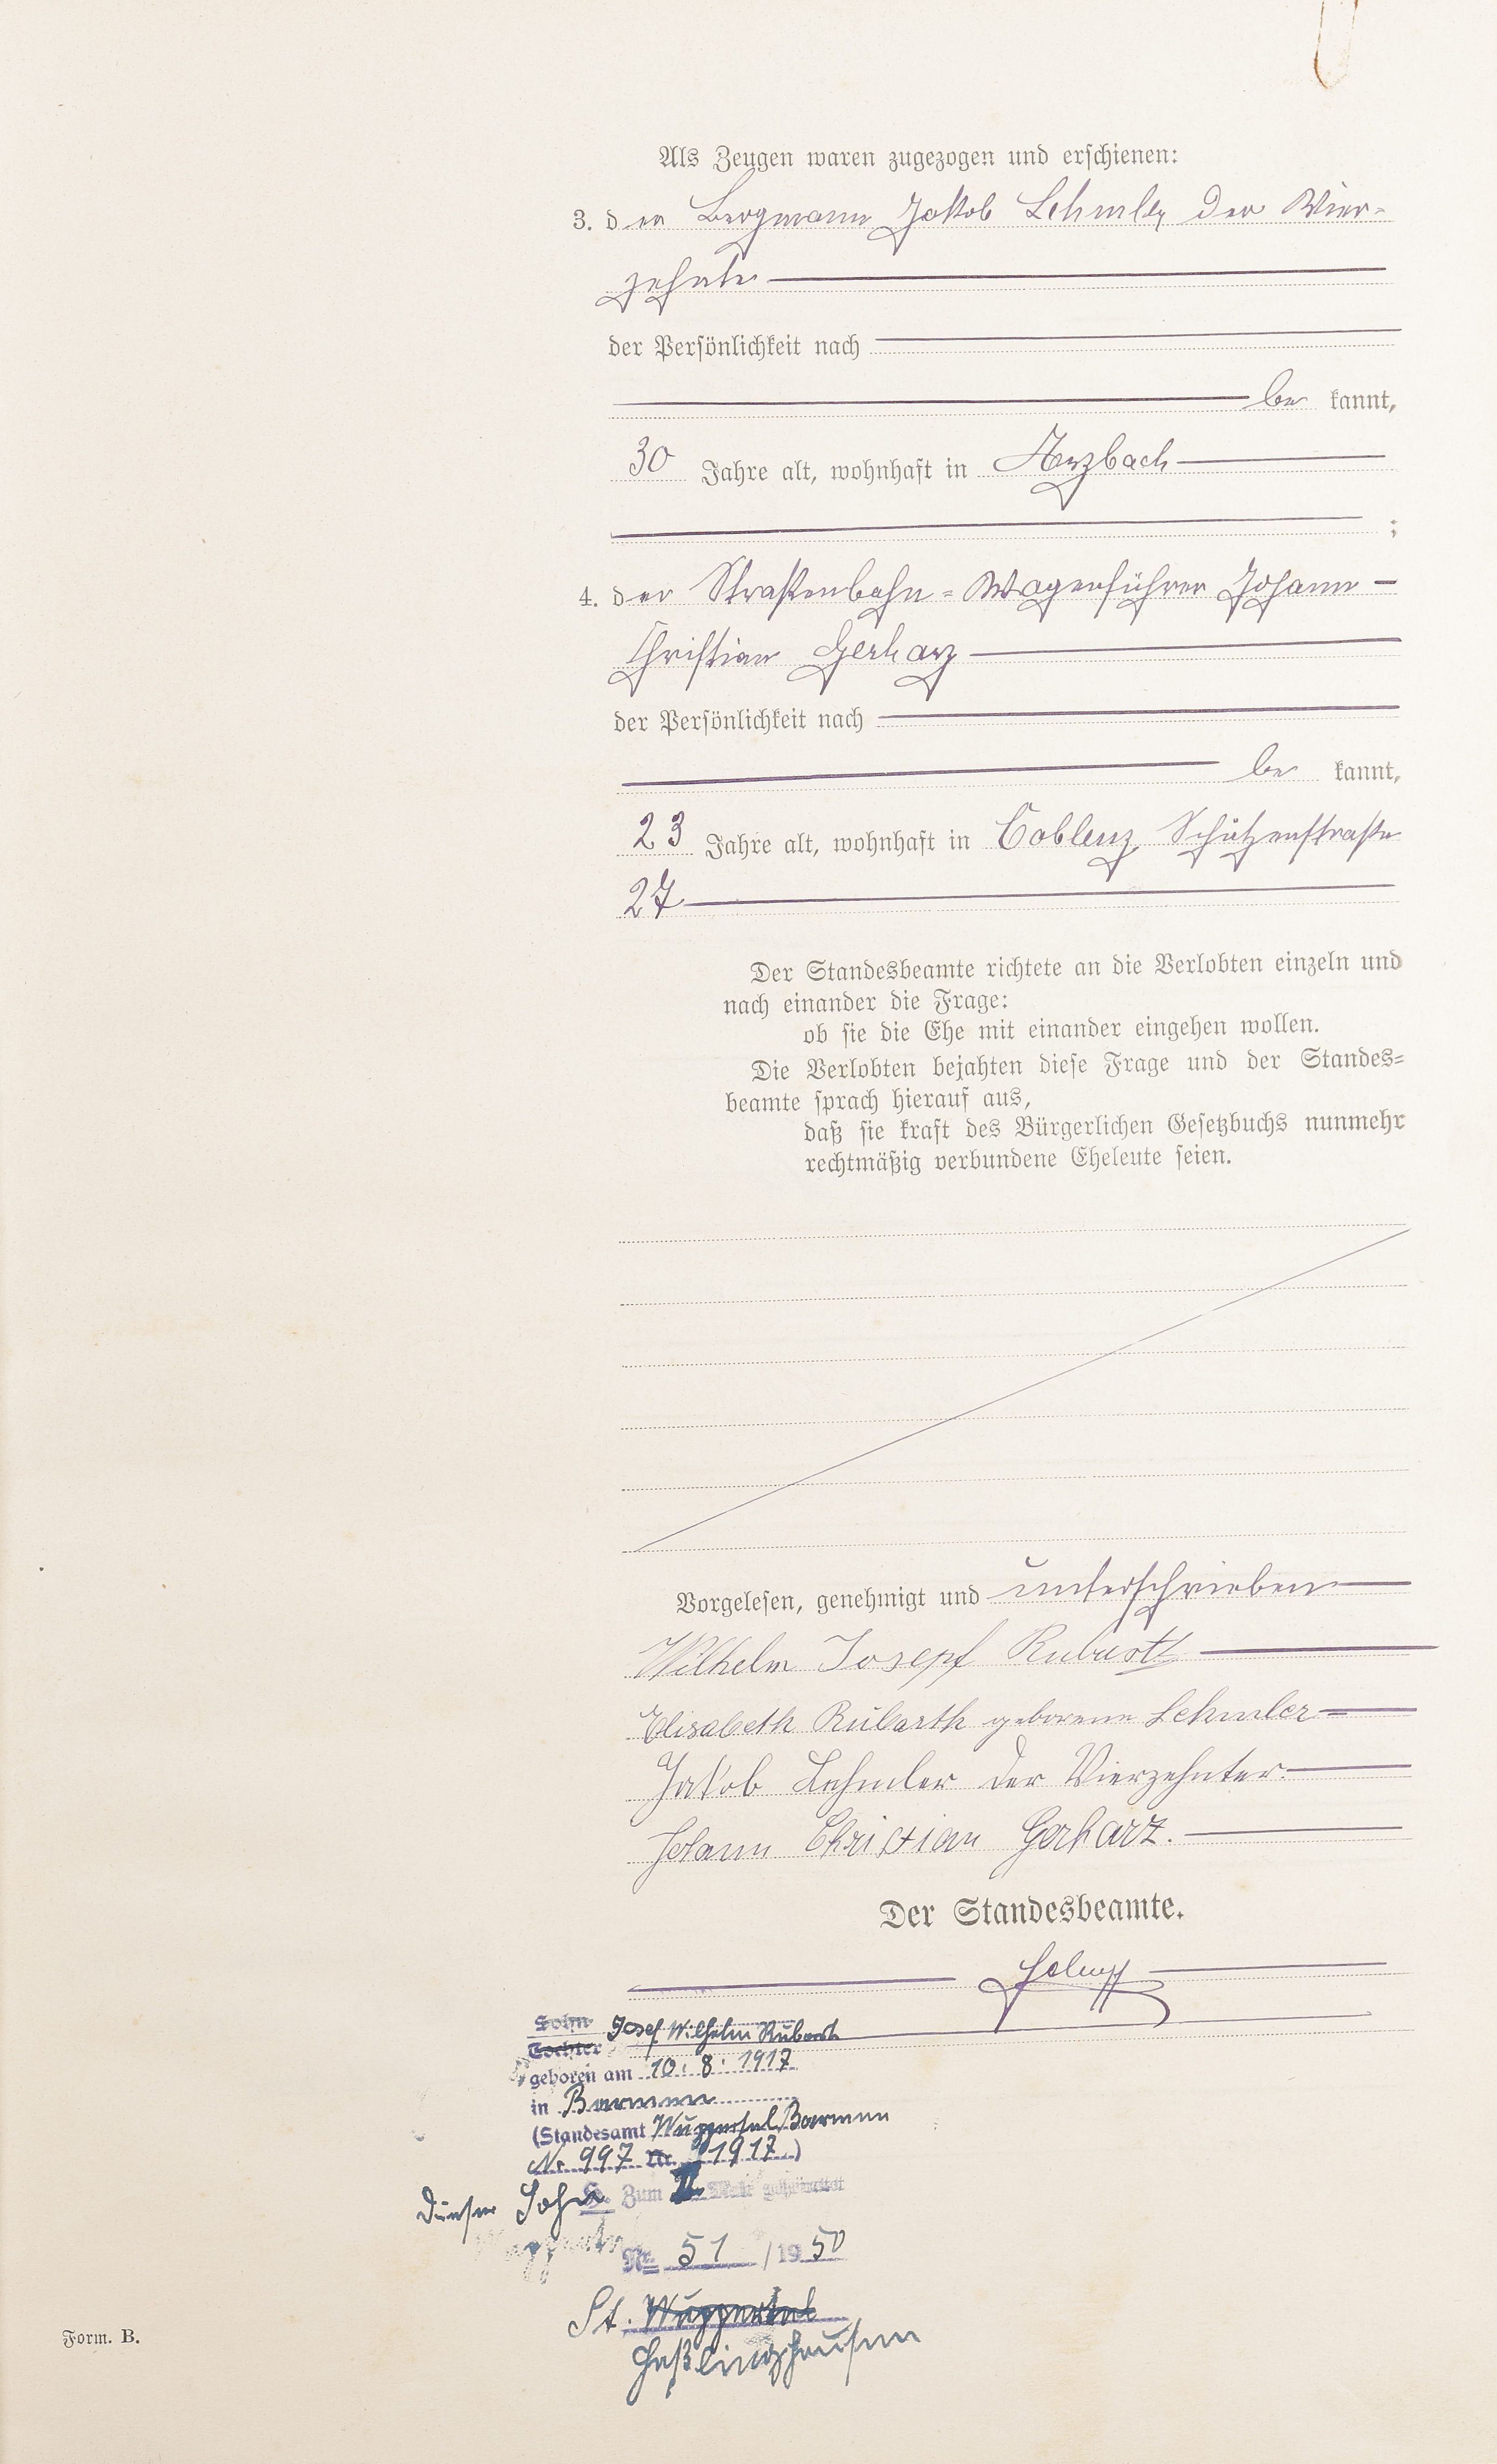 Als Zeugen waren zugezogen und erschienen:
3. der Bergmann Jakob Lehmler der Vier-
zehnte
der Persönlichkeit nach
be kannt,
30 Jahre alt, wohnhaft in Arzbach
;
4. der Straßenbahn-Wagenführer Johann
Christian Gerharz
der Persönlichkeit nach
be kannt,
23 Jahre alt, wohnhaft in Coblenz Schützenstraße
27
Der Standesbeamte richtete an die Verlobten einzeln und
nach einander die Frage:
ob sie die Ehe mit einander eingehen wollen.
Die Verlobten bejahten diese Frage und der Standes-
beamte sprach hierauf aus,
daß sie kraft des Bürgerlichen Gesetzbuchs nunmehr
rechtmäßig verbundene Eheleute seien.
Vorgelesen, genehmigt und unterschrieben
Wilhelm Josepf Rubarth
Elisabeth Rübarth geborene Lehmler
Jakob Lehmler der Vierzehnter.
Johann Christian Gerharz.
Der Standesbeamte.
Sohn Josef Wilhelm Rubarth
Tochter
geboren am 10. 8. 1917
in Barmen
(Standesamt Wuppertal Barmen
Nr. 997 Nr. 1917)
Dieser Sohn Zum II. Male geheiratet
Nr. 51 / 1950
St. Wuppertal
Haßlinghausen
Form. B.